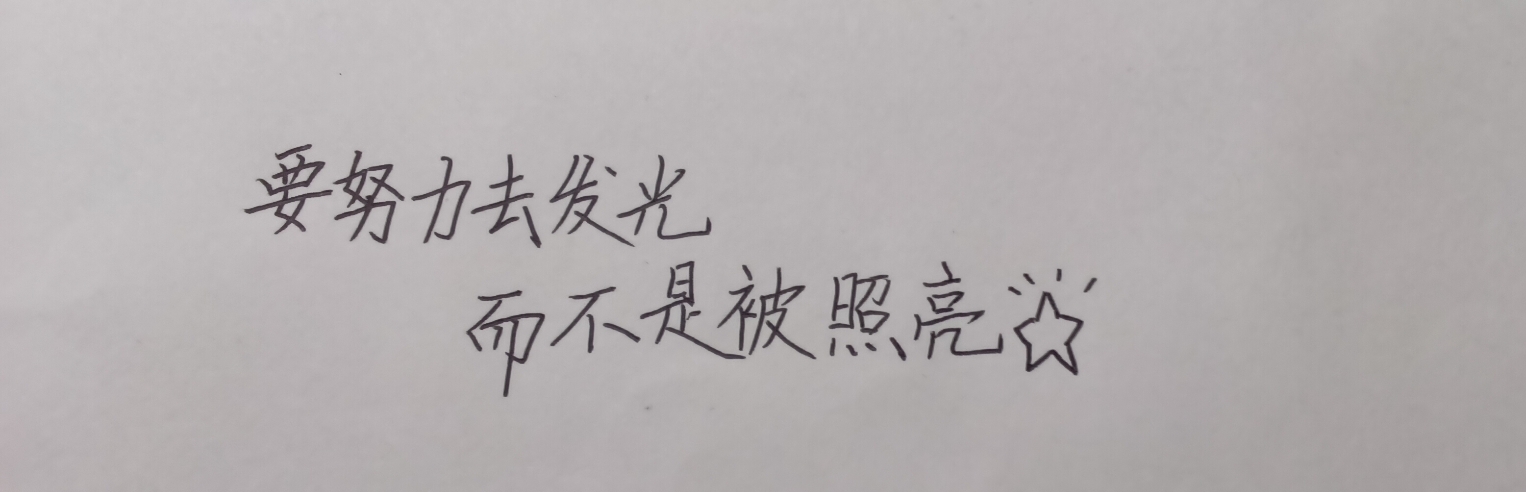 要努力去发光
而不是被照亮